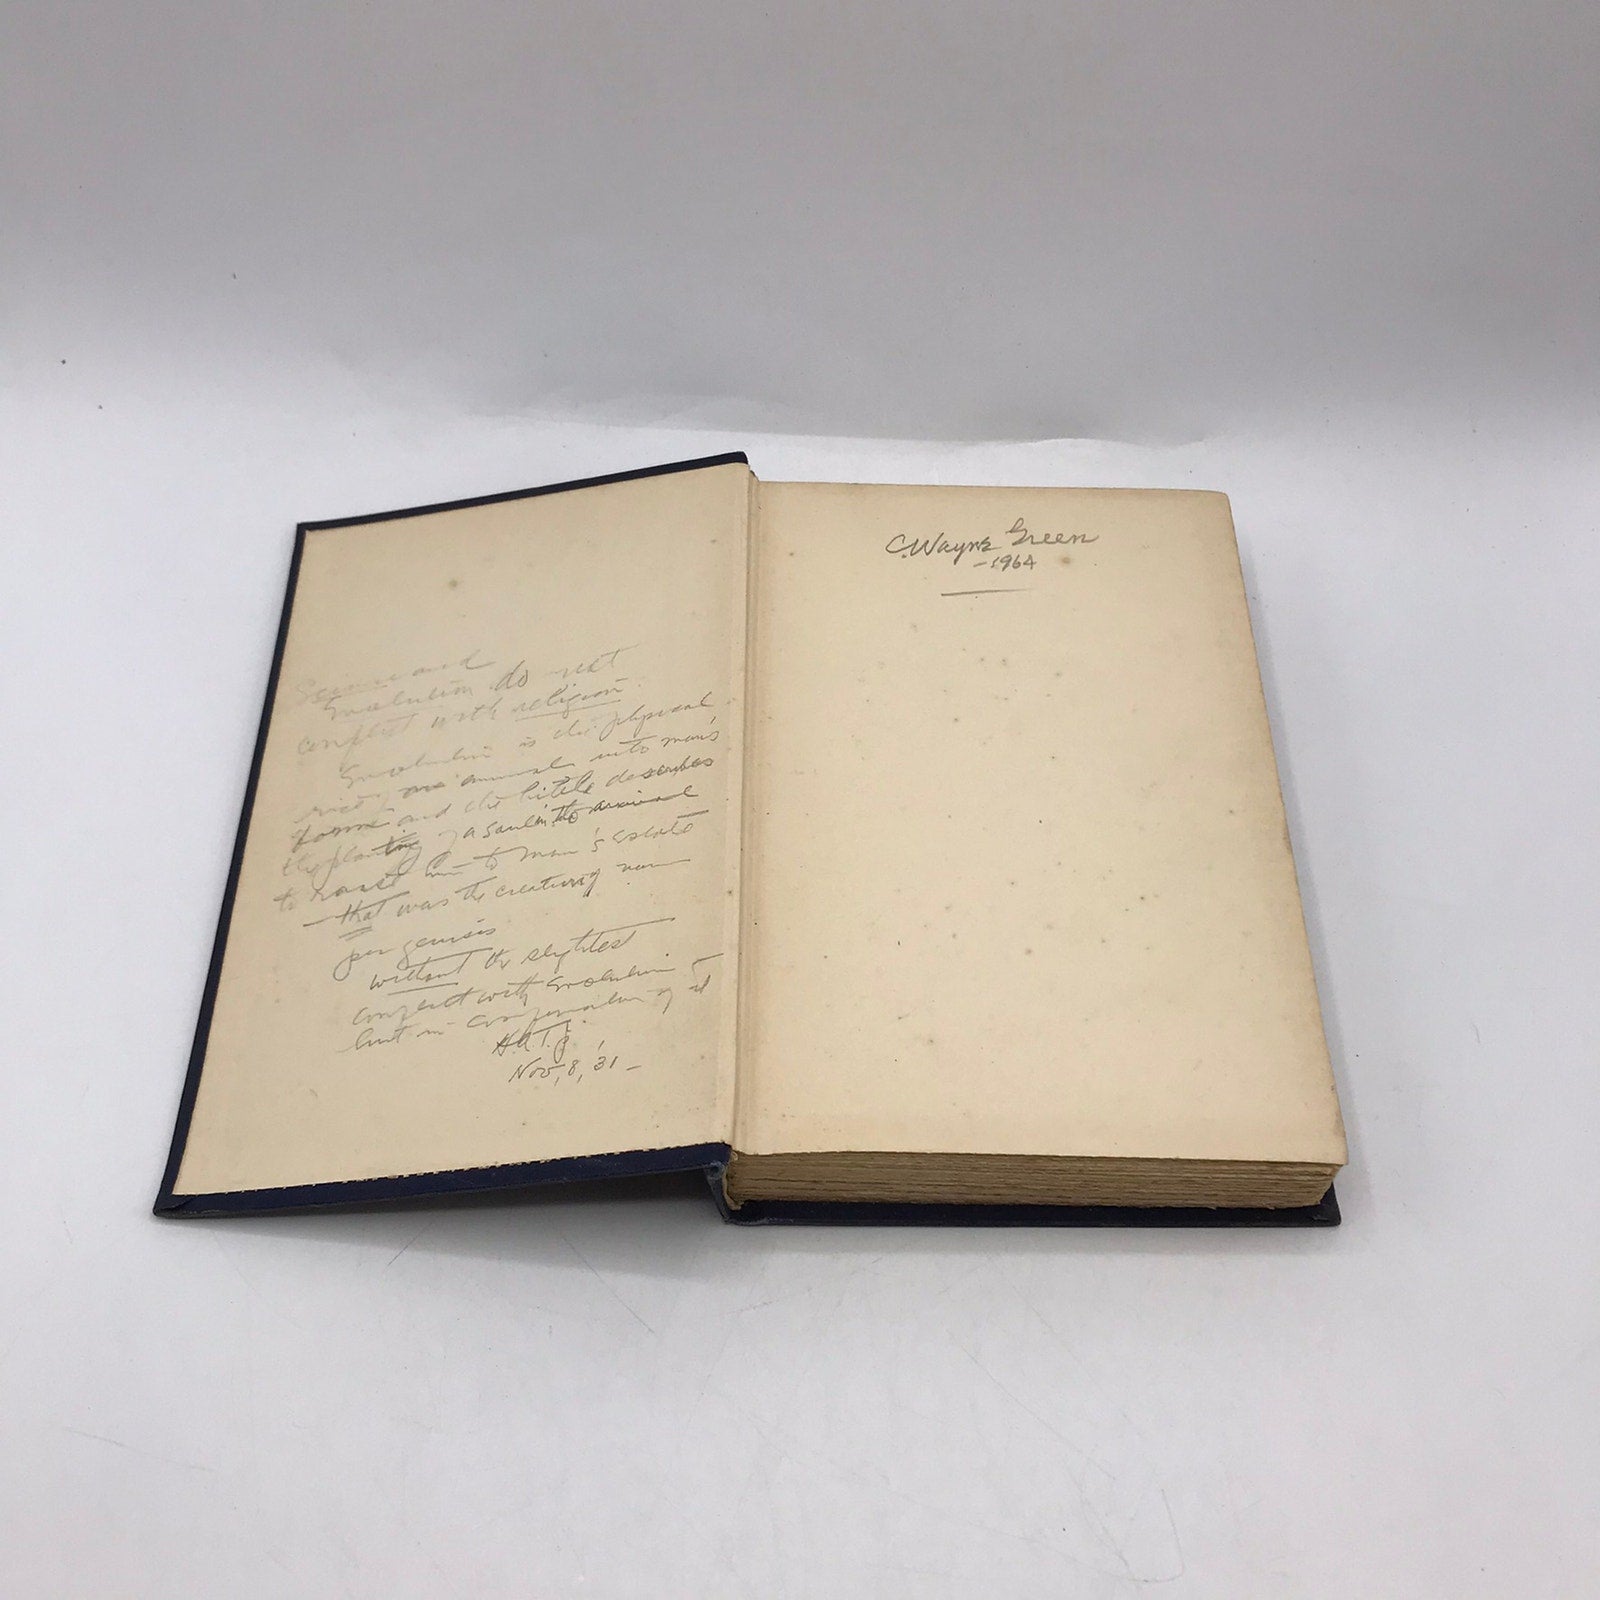 Science and
Evolution do not
conflict with religion.
Evolution is the physical
rise of an animal into man's
form and the bible describes
the planting of a soul in the animal
to raise him to man's estate
—that was the creating
per genesis
without the slightest
conflict with Evolution
but in confirmation of it
H.A.T.J.
Nov, 8, '31 –
C. Wayne Green
–1964